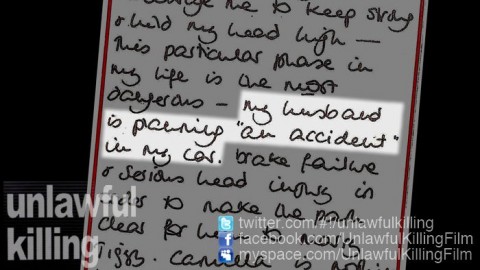 me to keep strong
& hold my head high —
This particular phase in
my life is the most
dangerous — my husband
is planning "an accident"
in my car. brake failure
& serious head injury in
order to make the path
clear for
Tiggy. Camilla is
unlawful
killing
twitter.com/#!/unlawfulkilling
facebook.com/UnlawfulKillingFilm
myspace.com/UnlawfulKillingFilm